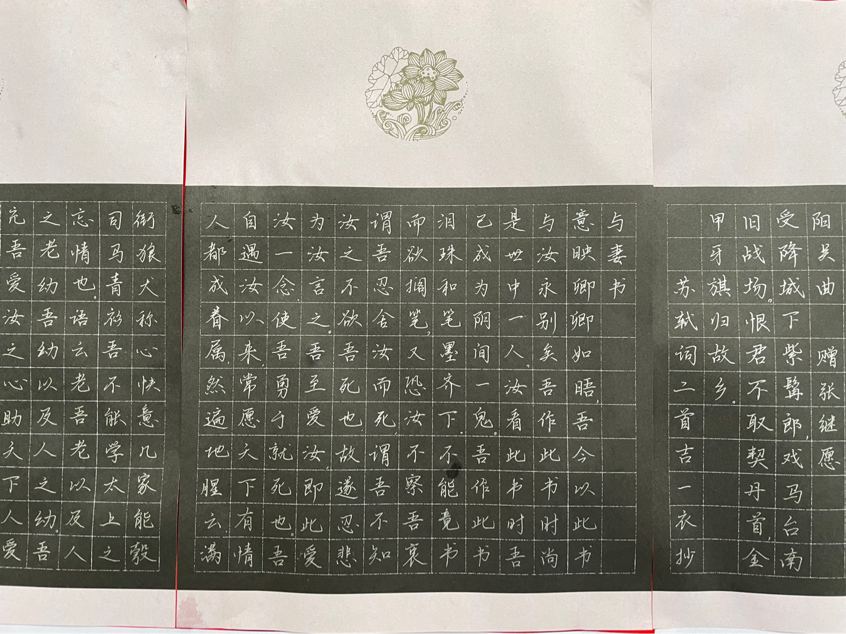 阳关曲 赠张继愿
受降城下紫髯郎,戏马台南
旧战场。恨君不取契丹首,金
甲牙旗归故乡。
苏轼词二首吉一衣抄
与妻书
意映卿卿如晤,吾今以此书
与汝永别矣吾作此书时尚
是世中一人。汝看此书时吾
已成为阴间一鬼。吾作此书
泪珠和笔墨齐下不能竟书
而欲搁笔,又恐汝不察吾衷
谓吾忍舍汝而死,谓吾不知
汝之不欲吾死也故遂忍悲
为汝言之。吾至爱汝,即此爱
汝一念,使吾勇于就死也。吾
自遇汝以来,常愿天下有情
人都成眷属,然遍地腥云满
街狼犬称心快意几家能彀
司马青衫吾不能学太上之
忘情也。语云老吾老以及人
之老幼吾幼以及人之幼。吾
充吾爱汝之心助天下人爱